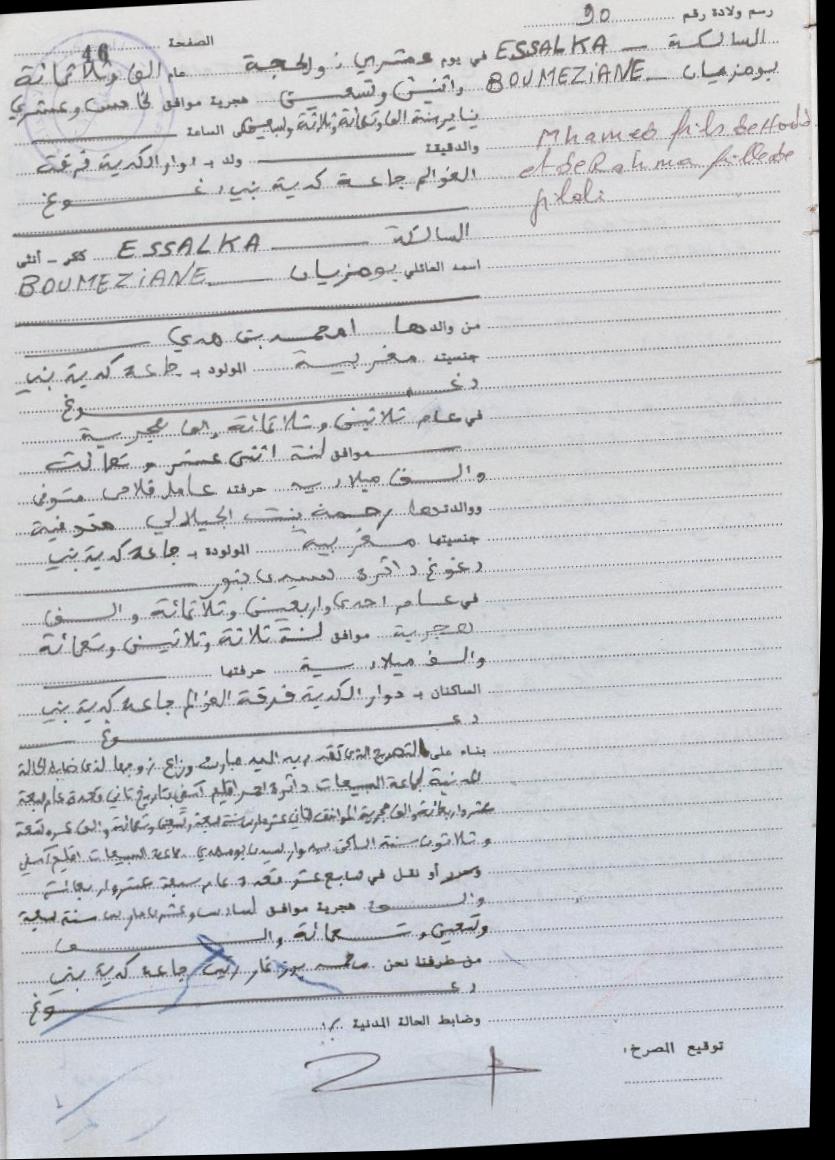 رسم ولادة رقم 90
الصفحة 46
السالكة ESSALKA
بومزيان BOUMEZIANE
Mhamed fils de Haddi
et de Rahma fille de
jilali
في يوم عشري ذو الحجة عام الف وثلاثمائة
واثنين وتسعين هجرية موافق لخامس وعشري
يناير سنة الف وتسعمائة وثلاثة وسبعين على الساعة
والدقيقة ولد بـ دوار الكدية فرقة
العوالم جماعة كدية بني دغـوغ
السالكة ESSALKA ذكر - أنثى
اسمه العائلي بومزيان BOUMEZIANE
من والدها امحمد بن هدي
جنسيته مغربية المولود بـ جماعة كدية بني
دغـوغ
في عام ثلاثين وثلاثمائة والف هجرية
موافق لسنة اثني عشر وتسعمائة
والف ميلادية حرفته عامل فلاحي متوفى
ووالدتها رحمة بنت الجيلالي متوفية
جنسيتها مغربية المولودة بـ جماعة كدية بني
دغوغ دائرة لسيدي بنور
في عام احدى واربعين وثلاثمائة والف
هجرية موافق لسنة ثلاثة وثلاثين وتسعمائة
والف ميلادية حرفتها
الساكنان بـ دوار الكدية فرقة العوالم جماعة كدية بني
دغـوغ
بناء على التصريح الذي تقدم به السيد مبارك وزاع زوجها لدى ضابط الحالة
المدنية لجماعة السبيعات دائرة احمر اقليم آسفي بتاريخ ثاني قعدة عام سبعة
عشر واربعمائة والف هجرية الموافق لثاني عشر مارس سنة سبعة وتسعين وتسعمائة والف عمره تسعة
وثلاثون سنة الساكن بدوار لسيدي بومهدي جماعة السبيعات اقليم آسفي
وحرر أو نقل في سابع عشر قعدة عام سبعة عشر واربعمائة
والف هجرية موافق لسادس وعشري مارس سنة سبعة
وتسعين وتسعمائة والف
من طرفنا نحن جماعة كدية بني
دغـوغ
وضابط الحالة المدنية بـ:
توقيع المصرح: